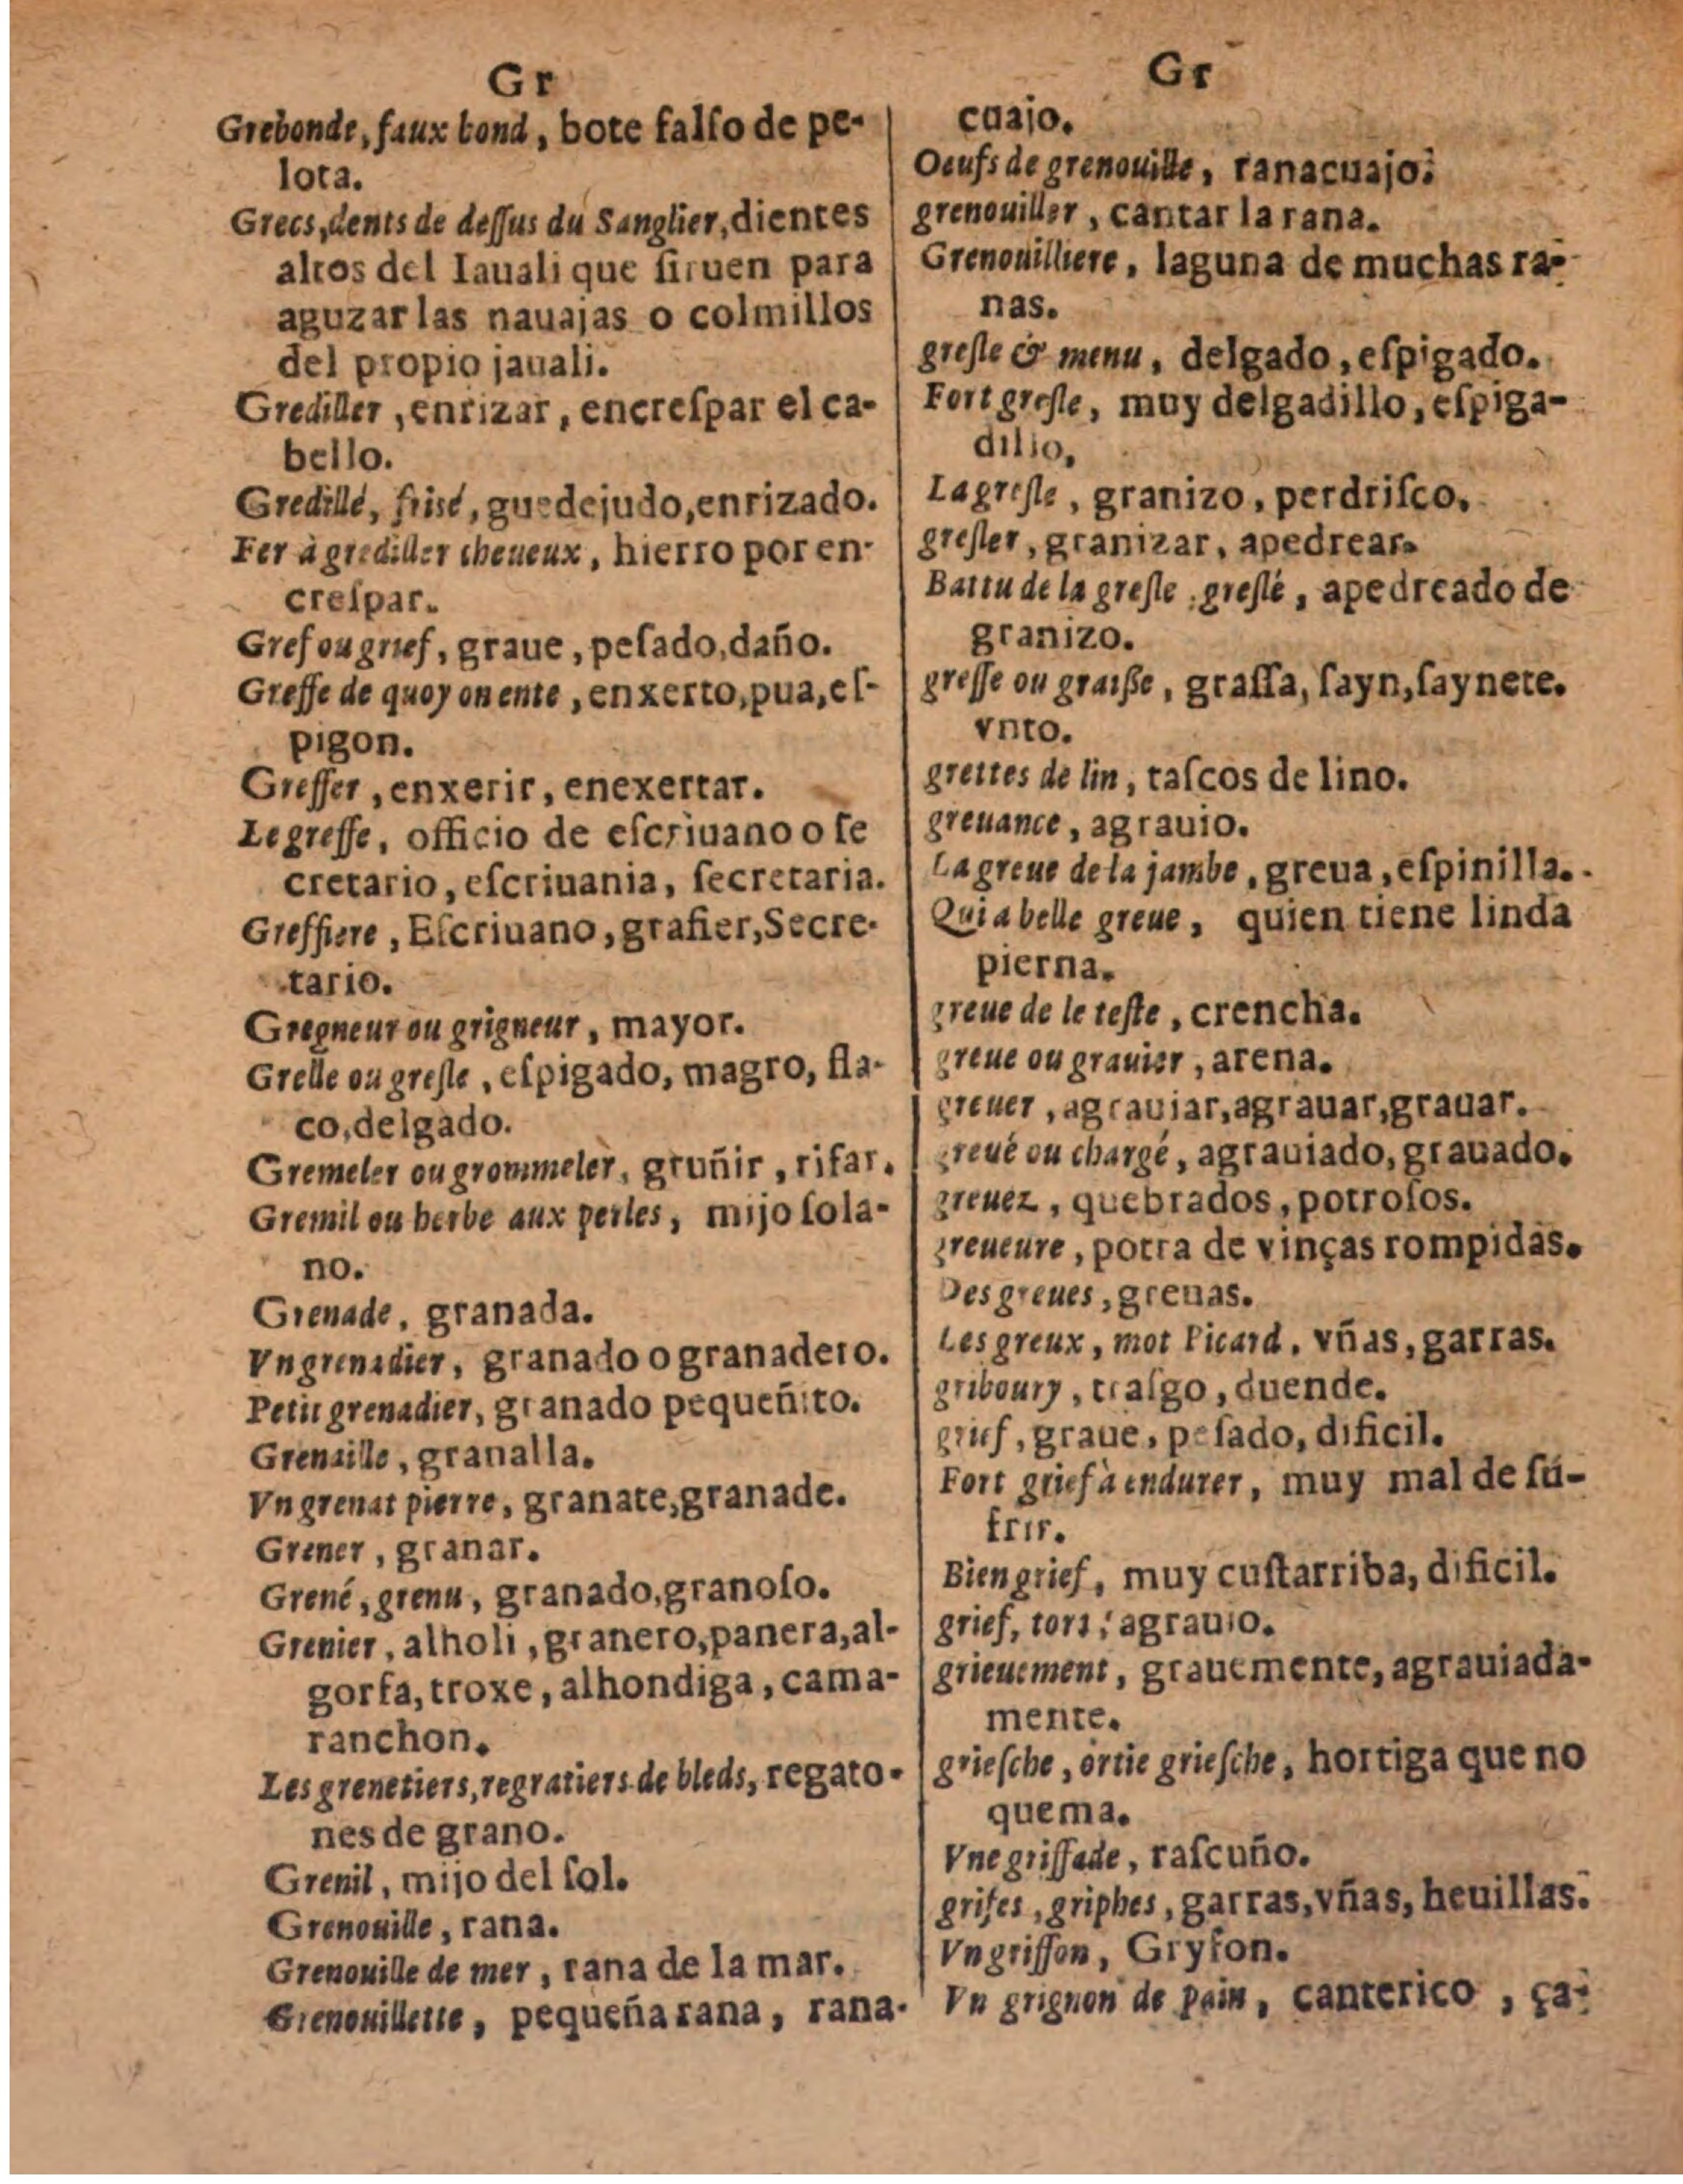 Gr
Grebonde, faux bond, bote falſo de pe-
lota.
Grecs, dents de deſſus du Sanglier, dientes
altos del Iauali que ſiruen para
aguzar las nauajas o colmillos
del propio jauali.
Grediller, enrizar, encreſpar el ca-
bello.
Gredillé, friſé, guedejudo, enrizado.
Fer à grediller cheueux, hierro por en-
creſpar.
Gref ou grief, graue, peſado, daño.
Greffe de quoy on ente, enxerto, pua, eſ-
pigon.
Greffer, enxerir, enexertar.
Le greffe, officio de eſcriuano o ſe
cretario, eſcriuania, ſecretaria.
Greffiere, Eſcriuano, grafier, Secre-
tario.
Gregneur ou grigneur, mayor.
Grelle ou greſle, eſpigado, magro, fla-
co, delgado.
Gremeler ou grommeler, gruñir, rifar.
Gremil ou herbe aux perles, mijo ſola-
no.
Grenade, granada.
Vn grenadier, granado o granadero.
Petit grenadier, granado pequeñito.
Grenaille, granalla.
Vn grenat pierre, granate, granade.
Grener, granar.
Grené, grenu, granado, granoſo.
Grenier, alholi, granero, panera, al-
gorfa, troxe, alhondiga, cama-
ranchon.
Les grenetiers, regratiers de bleds, regato-
nes de grano.
Grenil, mijo del ſol.
Grenouille, rana.
Grenouille de mer, rana de la mar.
Grenouillette, pequeña rana, rana-
Gr
cuajo.
Oeufs de grenouille, ranacuajo.
grenouiller, cantar la rana.
Grenouilliere, laguna de muchas ra-
nas.
greſle & menu, delgado, eſpigado.
Fort greſle, muy delgadillo, eſpiga-
dillo,
La greſle, granizo, perdriſco.
greſler, granizar, apedrear.
Battu de la greſle, greſlé, apedreado de
granizo.
greſſe ou graiße, graſſa, ſayn, ſaynete.
vnto.
grettes de lin, taſcos de lino.
greuance, agrauio.
La greue de la jambe, greua, eſpinilla.
Qui a belle greue, quien tiene linda
pierna.
greue de le teſte, crencha.
greue ou grauier, arena.
greuer, agrauiar, agrauar, grauar.
greué ou chargé, agrauiado, grauado.
greuez, quebrados, potroſos.
greueure, potra de vinças rompidas.
Des greues, greuas.
Les greux, mot Picard, vñas, garras.
griboury, traſgo, duende.
grief, graue, peſado, dificil.
Fort grief à endurer, muy mal de ſu-
frir.
Bien grief, muy cuſtarriba, dificil.
grief, tort, agrauio.
grieuement, grauemente, agrauiada-
mente.
grieſche, ortie grieſche, hortiga que no
quema.
Vne griffade, raſcuño.
grifes, griphes, garras, vñas, heuillas.
Vn griffon, Gryfon.
Vn grignon de pain, canterico, ça-